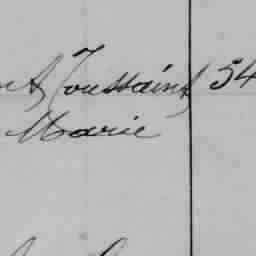 Toussaint 54
Marie